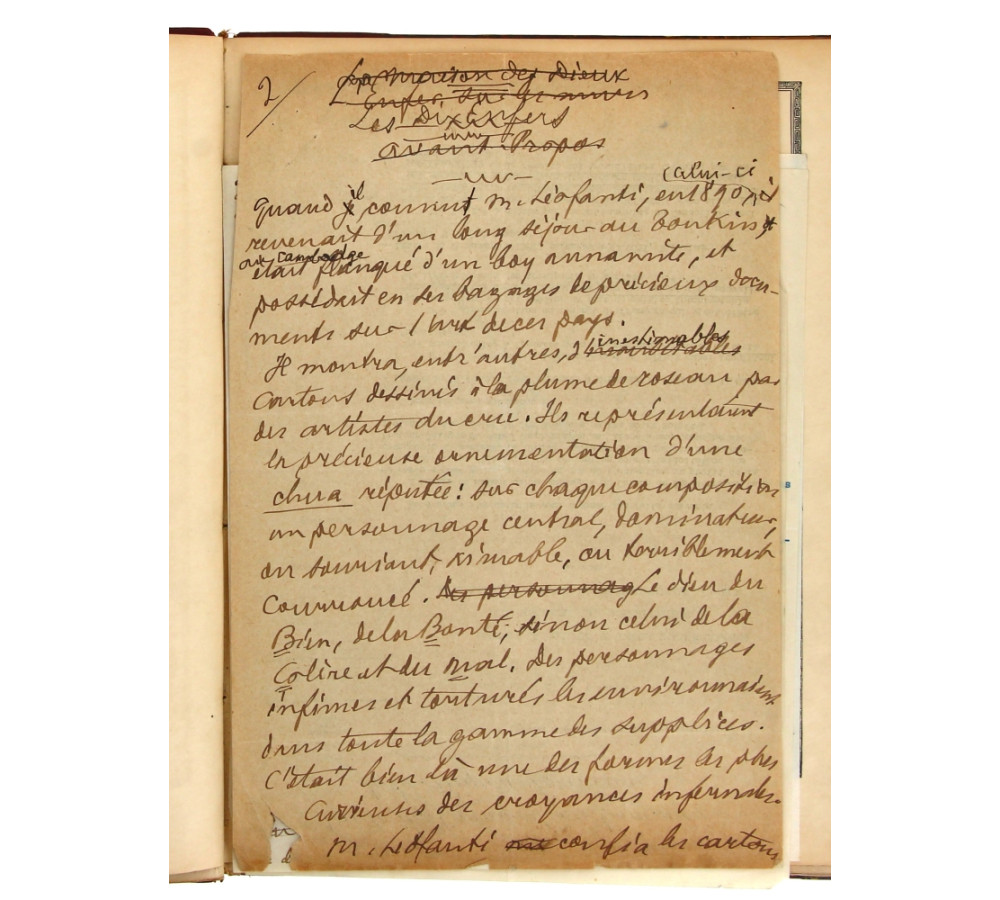 2/
La Maison des Dieux
Enfer sur les murs
Les Dix Enfers
Avant-Propos
celui-ci
Quand il connut M. Léofanti, en 1890,
revenait d'un long séjour au Tonkin,
au Cambodge
était flanqué d'un boy annamite, et
possédait en ses bagages de précieux docu-
ments sur l'Art de ces pays.
inestimables
Il montra, entr'autres, d'
cartons dessinés à la plume de roseau par
des artistes du cru. Ils représentaient
la précieuse ornementation d'une
chua réputée : sur chaque composition
un personnage central, dominateur,
ou souriant, aimable, ou terriblement
courroucé. Les personnag Le dieu du
Bien, de la Bonté, sinon celui de la
Colère et du Mal. Des personnages
infimes et torturés les environnaient
dans toute la gamme des supplices.
C'était bien là une des formes les plus
curieuses des croyances infernales.
M. Léofanti confia les cartons